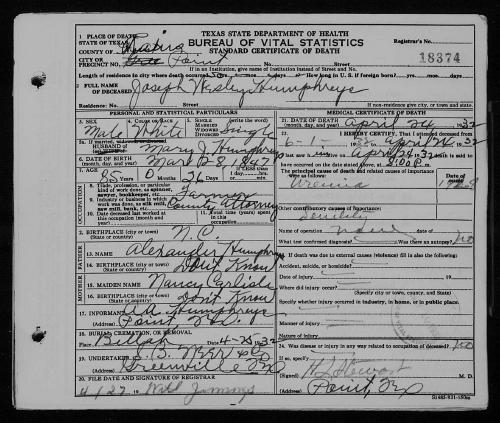 TEXAS STATE DEPARTMENT OF HEALTH
BUREAU OF VITAL STATISTICS
STANDARD CERTIFICATE OF DEATH
1 PLACE OF DEATH
STATE OF TEXAS
COUNTY OF Rains
CITY OR PRECINCT NO. Point
Registrar's No.
18374
If in an Institution, give name of Institution instead of Street and No.
Length of residence in city where death occurred yrs. mos. ds. How long in U. S. if foreign born? yrs. mos. ds.
2 FULL NAME OF DECEASED Joseph Wesley Humphreys
Residence: No. Street
If non-residence give city or town, county, and state.
PERSONAL AND STATISTICAL PARTICULARS
3 SEX Male
4 COLOR OR RACE White
5 SINGLE
MARRIED
WIDOWED
single
5a If married, widowed or divorced
HUSBAND OF
Mary J. Humphreys
6 DATE OF BIRTH (month, day, year) Mar 1847
7 AGE 85 0 26
If LESS than 1 day
8 Trade, profession, or particular kind of work done, as spinner, sawyer, bookkeeper, etc. Farmer
9 Industry or business in which work was done, as silk mill, saw mill, bank, etc. County Attorney
10 Date deceased last worked at this occupation (month and year)
11 Total time (years) spent in this occupation
12 BIRTHPLACE (State or country) N. C.
13 NAME Alexander Humphreys
14 BIRTHPLACE (city or town) (State or country) Dont Know
15 MAIDEN NAME Nancy Carlisle
16 BIRTHPLACE (city or town) (State or country) Dont Know
17 INFORMANT Humphreys
(Address) Point
18 BURIAL, CREMATION, OR REMOVAL
Place 4-25 1932
19 UNDERTAKER
(Address) Greenville Tex
20 FILE DATE AND SIGNATURE OF REGISTRAR
4/27 19
MEDICAL CERTIFICATE OF DEATH
21 DATE OF DEATH (month, day, year) April 24 1932
22 I HEREBY CERTIFY, That I attended deceased
from 6-1 19 to April 24 1932
I last saw h im alive on April 24 1932, death is said to have occurred on the date stated above, at
The principal cause of death and related causes of importance were as follows:
Uremia
Other contributory causes of importance:
Senility
Name of operation none
What test confirmed diagnosis? Was there an autopsy? No
23 If death was due to external causes (violence) fill in also the following:
Accident, suicide, or homicide?
Date of injury 19
Where did injury occur?
(Specify city or town, county, and State)
Specify whether injury occurred in industry, in home, or in public place.
Manner of injury
Nature of injury
24 Was disease or injury in any way related to occupation of deceased? No
If so, specify
(Signed) Stewart M. D.
(Address) Point, Tex